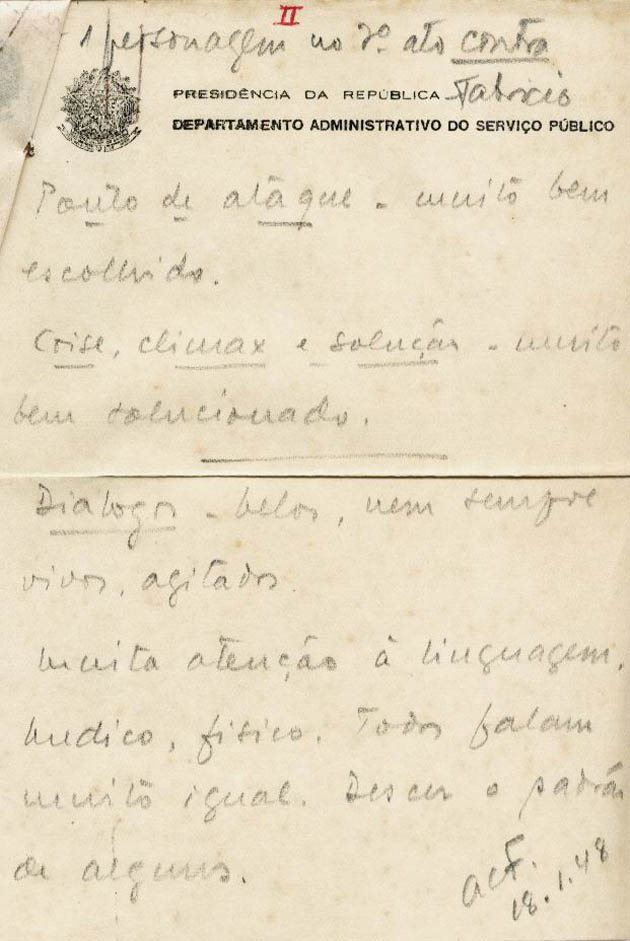 II
1 personagem no 3º ato contra
Fabricio
PRESIDÊNCIA DA REPÚBLICA
DEPARTAMENTO ADMINISTRATIVO DO SERVIÇO PÚBLICO
Ponto de ataque - muito bem
escolhido.
Crise, climax e solução - muito
bem solucionado.
Dialogos - belos, nem sempre
vivos, agitados
Muita atenção à linguagem,
medico, fisico. Todos falam
muito igual. Descer o padrão
de alguns.
18.1.48